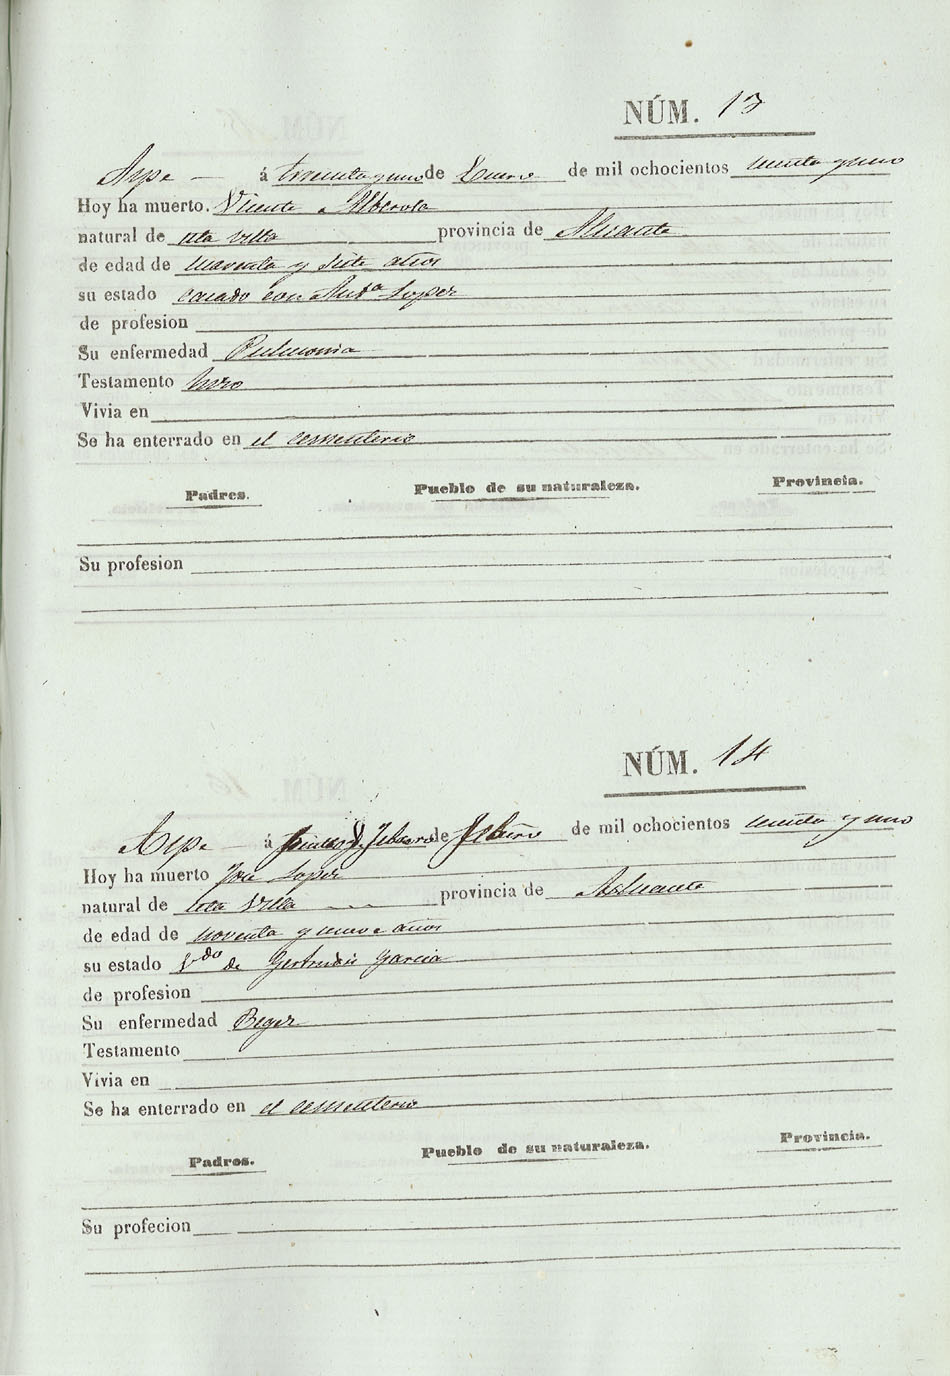 NÚM. 13
Aspe — á treinta y uno de Enero de mil ochocientos sesenta y uno
Hoy ha muerto. Vicente Alberola
natural de esta villa provincia de Alicante
de edad de y siete años
su estado casado con Lopez
de profesion
Su enfermedad Pulmonia
Testamento hizo
Vivia en
Se ha enterrado en el cementerio
Padres. Pueblo de su naturaleza. Provincia.
Su profesion
NÚM. 14
Aspe á de de mil ochocientos sesenta y uno
Hoy ha muerto José Lopez
natural de esta Villa provincia de Alicante
de edad de noventa y nueve años
su estado Vdo de Gertrudis Garcia
de profesion
Su enfermedad Begez
Testamento
Vivia en
Se ha enterrado en el cementerio
Padres. Pueblo de su naturaleza. Provincia.
Su profecion